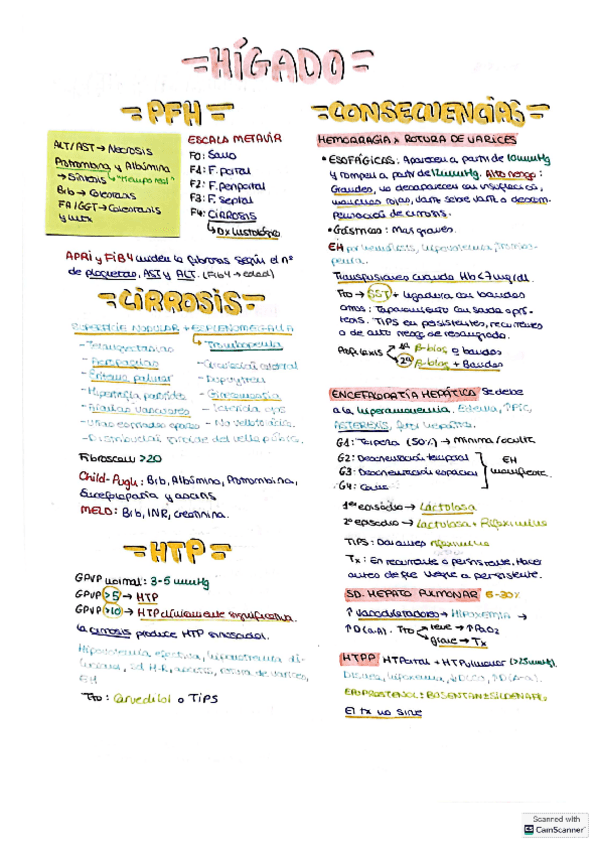 =HÍGADO=
=PFH=
ALT/AST → Necrosis
Protrombina y Albúmina
→ Síntesis
Bib → Colestasis
FA/GGT → Colestasis
ESCALA METAVIR
F0: Sano
F1: F. portal
F2: F. periportal
F3: F. septal
F4: CIRROSIS
↳ Dx histológico
APRI y FIB4 miden la fibrosis según el nº
de plaquetas, AST y ALT. (Fib4 → edad)
=CIRROSIS=
SUPERFICIE NODULAR + ESPLENOMEGALIA
↳ Trombopenia
- Telangiectasias
- Eritema palmar
- Hipertrofia parótida
- Arañas vasculares
- Circulación colateral
- Dupuytren
- Ginecomastia
- Distribución ginoide del vello púbico.
Fibroscan >20
Child-Pugh: Bib, Albúmina, Protrombina,
Encefalopatía y ascitis
MELD: Bib, INR, creatinina.
=HTP=
GPVP normal: 3-5 mmHg
GPVP >5 → HTP
GPVP >10 → HTP clínicamente significativa.
la cirrosis produce HTP sinusoidal.
EH
Tto: Carvedilol o TIPS
=CONSECUENCIAS=
HEMORRAGIA x ROTURA DE VARICES
• ESOFÁGICAS: Aparecen a partir de 10mmHg
y rompen a partir 12mmHg. Alto riesgo:
Grandes, no desaparecen con insuflación,
manchas rojas, darse sobre varil o descom.
pensación de cirrosis.
• Gástricas: Mas graves.
Transfusiones cuando Hb<7mg/dl.
Tto → SST + ligadura con bandas
otros: taponamiento con sonda o pró-
tesis. TIPS en persistentes, recurrentes
o de alto riesg. de resangrado.
Profilaxis 1ª β-bloq o bandas
2ª β-bloq + Bandas
ENCEFALOPATÍA HEPÁTICA Se debe
a la hiperamonemia, Edema, ↑PIC,
ASTERIXIS, fetor hepático.
G1: Torpeza (50%) → mínima/oculta
G2: Desorientación temporal
G3: Desorientación espacial
G4: Coma
EH
manifiesta.
1er episodio → Lactulosa
2º episodio → Lactulosa + Rifaximina
TIPS: Dar antes rifaximina
Tx: En recurrente o persistente. Hacer
antes de que llegue a persistente.
SD. HEPATO PULMONAR 5-30%
↑ Vasodilatadores → Hipoxemia →
↑D(A-a). Tto leve → ↑PaO2
grave → Tx
HTPP HTPortal + HTPulmonar (>25mmHg).
Disnea, hipoxemia, ↓DLCO, ↑D(A-a).
EPOPROSTENOL: BOSENTAN ± SILDENAFIL
El tx no sirve
Scanned with
CamScanner